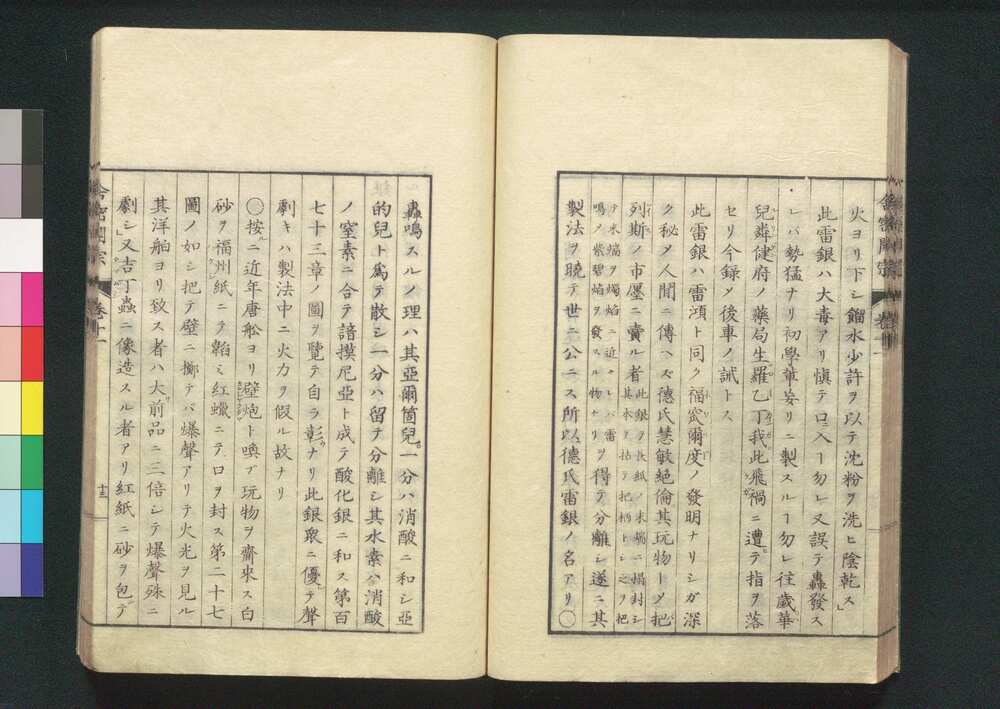 火ヨリ下シ餾水少許ヲ以テ沈粉ヲ洗ヒ陰乾ス」
此雷銀ハ大毒アリ愼テ口ニ入ー勿レ又誤テ轟發ス
レバ勢猛ナリ初學輩妄リニ製スルー勿レ往歲華
兒舜健府ノ藥局生羅乙丁我此飛禍ニ遭テ指ヲ落
セリ今錄ノ後車ノ誡トス
此雷銀ハ雷澒ト同ク福窊爾度ノ發明ナリシガ深
ク秘メ人聞ニ傳ヘズ德氏慧敏絕倫其玩物トメ把
列斯ノ市廛ニ賣ル者此銀ヲ長紙ノ末端ニ搨封シ其本ヲ拈テ把柄トシ之ヲ把
テ末端ヲ燭焰ニ近クレバ雷鳴ノ紫碧焰ヲ發スル物ナリヲ得テ分離シ遂ニ其
製法ヲ曉テ世ニ公ニス所以德氏雷銀ノ名アリ○
舍密開宗 卷十一
轟鳴スルノ理ハ其亞爾箇兒一分ハ消酸ニ和シ亞
的兒ト爲テ散シ一分ハ留テ分離シ其水素ハ消酸
ノ窒素ニ合テ諳摸尼亞ト成テ酸化銀ニ和ス第百
七十三章ノ圖ヲ覽テ自ラ彰ナリ此銀眾ニ優テ聲
劇キハ製法中ニ火力ヲ假ル故ナリ
○按ニ近年唐舩ヨリ壁炮ト喚ブ玩物ヲ齎來ス白
砂ヲ福州紙ニテ韜ミ紅蠟ニテ口ヲ封ス第二十七
圖ノ如シ把テ壁ニ擲テバ爆聲アリテ火光ヲ見ル
其洋舶ヨリ致ス者ハ大前品ニ三倍シテ爆聲殊ニ
劇シ」又吉丁蟲ニ像造スル者アリ紅紙ニ砂ヲ包デ
舍密開宗 卷十一 十三